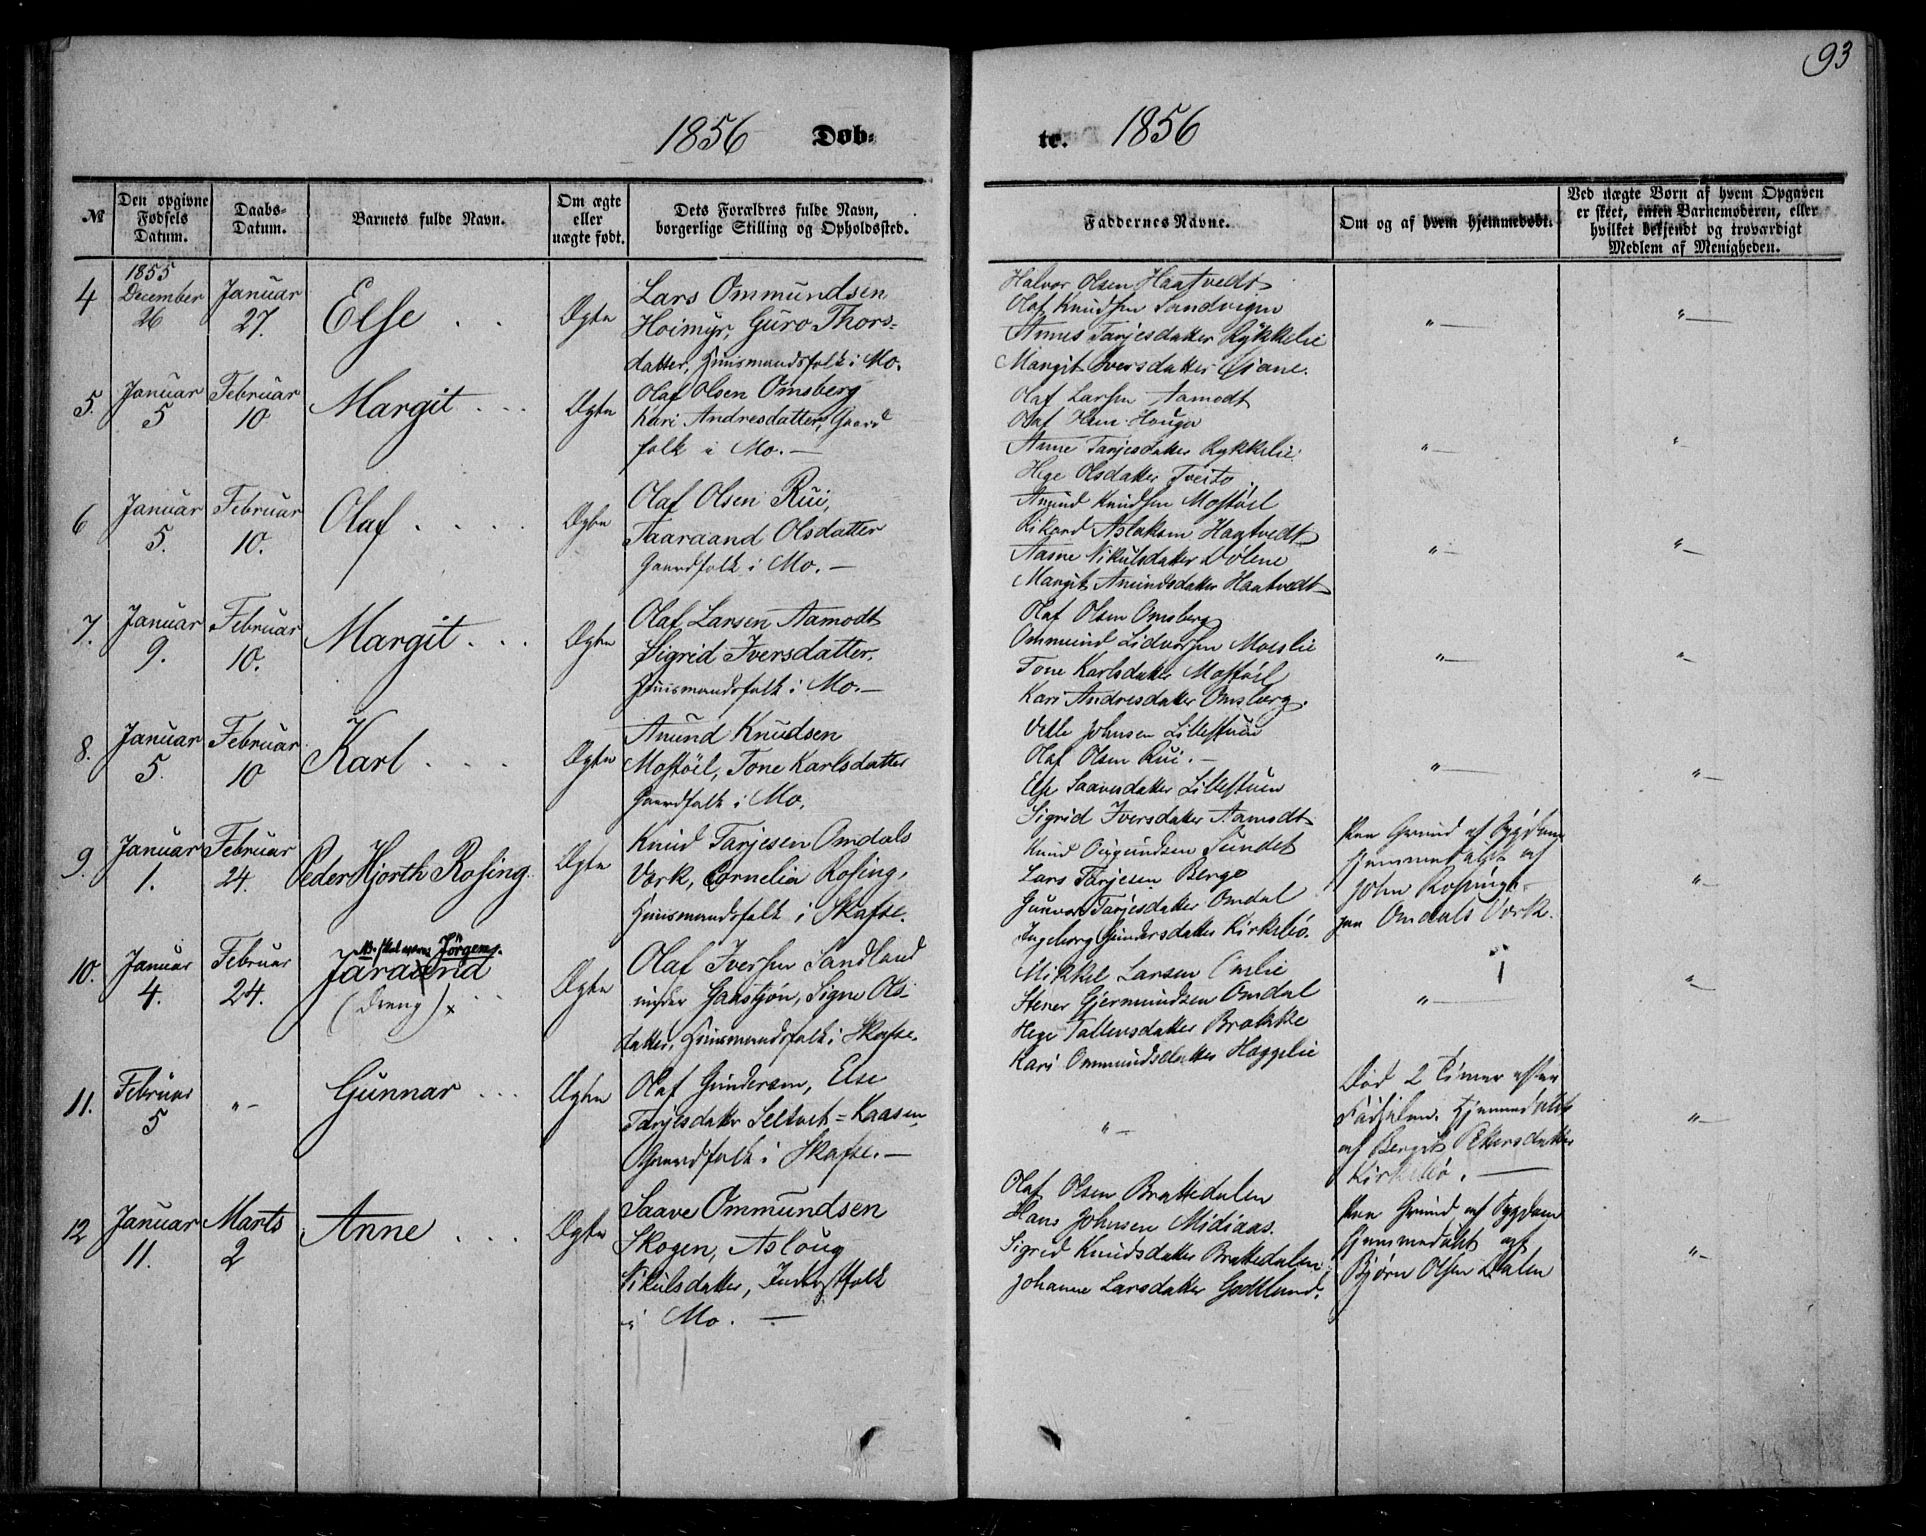 93
1856 Døb-
te. 1856
№
Den opgivne Fødsels Datum.
Daabs-Datum.
Barnets fulde Navn.
Om ægte eller uægte født.
Dets Forældres fulde Navn, borgerlige Stilling og Opholdssted.
Faddernes Navne.
Om og af hvem hjemmedøbt.
Ved uægte Børn af hvem Opgaven er skeet, enten Barnemoderen, eller hvilket bekjendt og troværdigt Medlem af Menigheden.
4
1855
December
26
Januar
27.
Else
Ægte
Lars Ommundsen
Hoimyr, Guro Thors-
datter, Huusmandsfolk i Mo.
Halvor Olsen Haatvedt
Olaf Knudsen Sandvigen
Tarjesdatter Rykkelie
Margit Iversdatter
" —
" —
5.
Januar
5
Februar
10
Margit
Ægte
Olaf Olsen Omsberg
Kari Andresdatter, Gaard
folk i Mo. —
Olaf Larsen Aamodt
Olaf Houga
Anne Tarjesdatter Rykkelie
Hege Olsdatter Tveito
" —
" -
6
Januar
5.
Februar
10.
Olaf
Ægte
Olaf Olsen Rui,
Taaraand Olsdatter
Gaardfolk i Mo. —
Anund Knudsen Mostøil
Rikard Aslaksen Haatvedt
Aasne Nikulsdatter Dolene
Margit Anundsdatter Haatvedt
" —
" —
7.
Januar
9.
Februar
10.
Margit
Ægte
Olaf Larsen Aamodt
Sigrid Iversdatter,
Huusmandsfolk i Mo. —
Olaf Olsen Omsberg
Ommund Lidvorsen Moeslie
Tone Karlsdatter Mostøil
Kari Andresdatter Omsberg.
" —
" -
8.
Januar
5.
Februar
10
Karl
Ægte
Anund Knudsen
Mostøil, Tone Karlsdatter
Gaardfolk i Mo.
Vetle Johnsen Lillestuen
Olaf Olsen Rui. —
Else Saavesdatter Lillestuen
Sigrid Iversdatter Aamodt
" —
" —
9.
Januar
1.
Februar
24.
Peder Hjorth Rosing
Ægte
Knud Tarjesen Omdals
Værk, Cornelia Rosing,
Huusmandsfolk i Skafse.
Knud Ougundsen Sundet
Lars Tarjesen Berge
Gunvor Tarjesdatter Omdal
Ingeborg Gundersdatter Kirkebø.
Paa Grund af Sygdom
hjemmedøbt af
John Rosing
paa Omdals Værk.
" —
10.
Januar
4.
Februar
24.
NB. skal være Jørgen
Jaraand
(Dreng) x
Ægte
Olaf Iversen Sandland
under Gaastjøn, Signe Ols-
datter, Huusmandsfolk i Skafse.
Mikkel Larsen Omlie
Stener Gjermundsen Omdal
Hege Tallevsdatter Brokke
Kari Ommundsdatter Heggelie
" —
" —
11.
Februar
5
" —
Gunnar
Ægte
Olaf Gundersen, Else
Tarjesdatter Seltveit = Kaasen,
Gaardfolk i Skafse. —
" —
Død 2 Timer efter
Fødselen. Hjemmedøbt
af Bergit Petersdatter
Kirkebø. —
" —
12
Januar
11.
Marts
2
Anne
Ægte
Saave Ommundsen
Skogen, Asloug
Nikulsdatter, Inderstfolk
i Mo. —
Olaf Olsen Brattedalen
Hans Johnsen Midiaas.
Sigrid Knudsdatter Brattedalen
Johanne Larsdatter Godtlund.
Paa Grund af Sygdom
hjemmedøbt af
Bjørn Olsen Dalen
" —